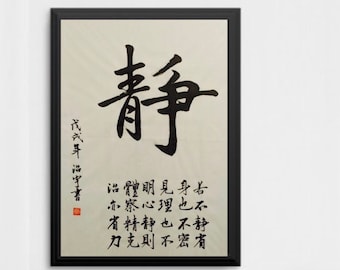 靜
若不静省
身也不密
見理也不
明心静則
體察精克
治亦省力
戊戌年 書